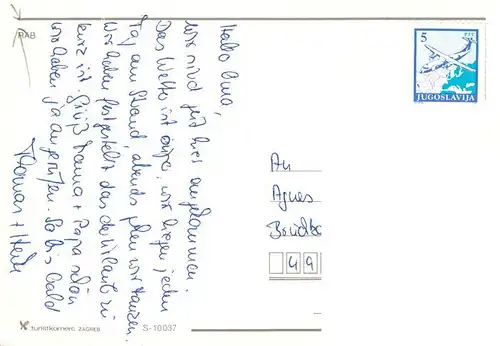 RAB
Hallo Oma,
wir sind gut hier angekommen.
Das Wetter ist super, wir liegen jeden
Tag am Strand, abends gehen wir tanzen
Wir haben festgestellt das der Urlaub zu
kurz ist. Grüß Mama + Papa schön
wir haben ja angerufen. So bis bald
Thomas +
5
PTT
JUGOSLAVIJA
An
Agnes
49
turistkomerc ZAGREB
S-10037